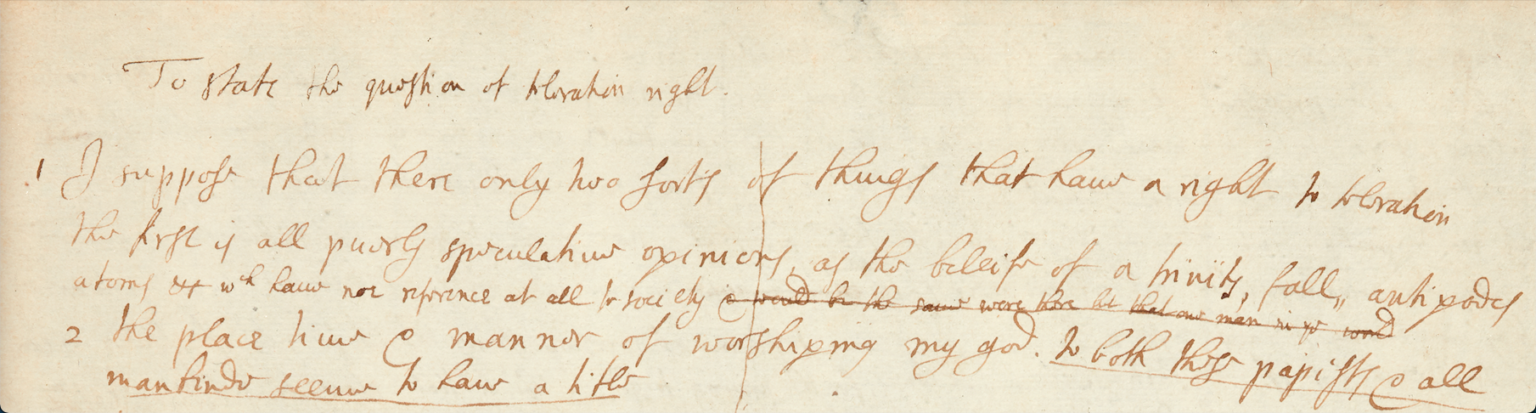 To state the question of toleration right.
1 I suppose that there only two sorts of things that have a right to toleration
the first is all purely speculative opinions, as the beleife of a trinity, fall, antipodes
atoms &c wch have noe reference at all to society & would be the same were there but that one man in ye world
2 the place time & manner of worshiping my god. to both these papists & all
mankinde seeme to have a title